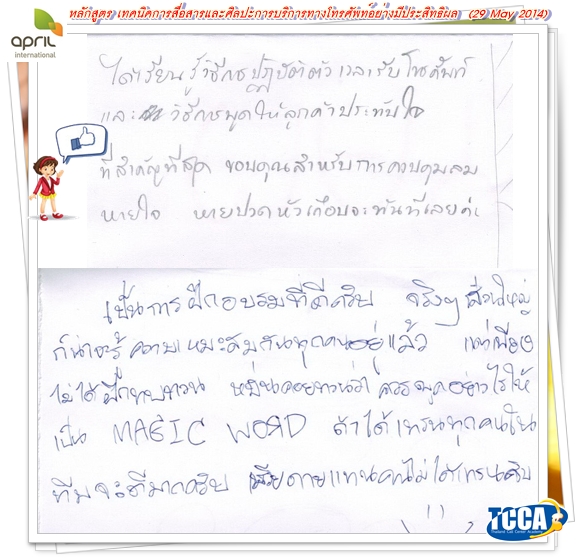 หลักสูตร เทคนิคการสื่อสารและศิลปะการบริการทางโทรศัพท์อย่างมีประสิทธิผล (29 May 2014)
april
international
ได้เรียนรู้วิธีการปฏิบัติตัว เวลารับโทรศัพท์
และ วิธีการพูดให้ลูกค้าประทับใจ
ที่สำคัญที่สุด ขอบคุณสำหรับการควบคุมลม
หายใจ หายปวดหัวเกือบจะทันทีเลยค่ะ
เป็นการฝึกอบรมที่ดีครับ จริงๆ ส่วนใหญ่
ก็น่าจะรู้ความเหมาะสมกันทุกคนอยู่แล้ว แต่เพียง
ไม่ได้ฝึกทบทวน หมั่นคอยทวนว่า ควรพูดอย่างไรให้
เป็น MAGIC WORD ถ้าได้เทรนทุกคนใน
ทีมจะดีมากครับ เสียดายแทนคนไม่ได้เทรนครับ
TCCA
Thailand Call Center Academy